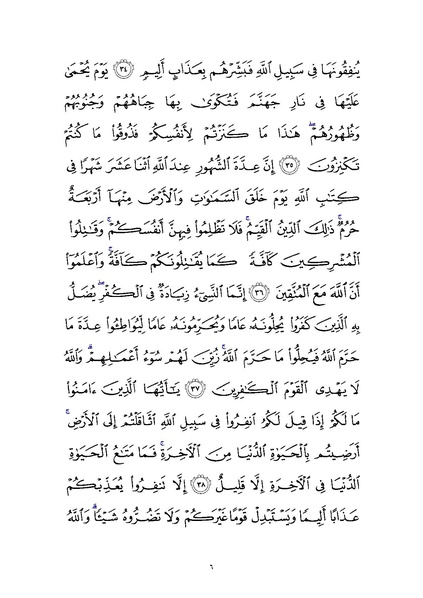 يُنفِقُونَهَا فِي سَبِيلِ ٱللَّهِ فَبَشِّرْهُم بِعَذَابٍ أَلِيمٍ ﴿٣٤﴾ يَوْمَ يُحْمَىٰ
عَلَيْهَا فِي نَارِ جَهَنَّمَ فَتُكْوَىٰ بِهَا جِبَاهُهُمْ وَجُنُوبُهُمْ
وَظُهُورُهُمْ ۖ هَٰذَا مَا كَنَزْتُمْ لِأَنفُسِكُمْ فَذُوقُوا۟ مَا كُنتُمْ
تَكْنِزُونَ ﴿٣٥﴾ إِنَّ عِدَّةَ ٱلشُّهُورِ عِندَ ٱللَّهِ ٱثْنَا عَشَرَ شَهْرًا فِي
كِتَٰبِ ٱللَّهِ يَوْمَ خَلَقَ ٱلسَّمَٰوَٰتِ وَٱلْأَرْضَ مِنْهَآ أَرْبَعَةٌ
حُرُمٌ ۚ ذَٰلِكَ ٱلدِّينُ ٱلْقَيِّمُ ۚ فَلَا تَظْلِمُوا۟ فِيهِنَّ أَنفُسَكُمْ ۚ وَقَٰتِلُوا۟
ٱلْمُشْرِكِينَ كَآفَّةً كَمَا يُقَٰتِلُونَكُمْ كَآفَّةً ۚ وَٱعْلَمُوٓا۟
أَنَّ ٱللَّهَ مَعَ ٱلْمُتَّقِينَ ﴿٣٦﴾ إِنَّمَا ٱلنَّسِيٓءُ زِيَادَةٌ فِي ٱلْكُفْرِ ۖ يُضَلُّ
بِهِ ٱلَّذِينَ كَفَرُوا۟ يُحِلُّونَهُۥ عَامًا وَيُحَرِّمُونَهُۥ عَامًا لِّيُوَاطِـُٔوا۟ عِدَّةَ مَا
حَرَّمَ ٱللَّهُ فَيُحِلُّوا۟ مَا حَرَّمَ ٱللَّهُ ۚ زُيِّنَ لَهُمْ سُوٓءُ أَعْمَٰلِهِمْ ۗ وَٱللَّهُ
لَا يَهْدِي ٱلْقَوْمَ ٱلْكَٰفِرِينَ ﴿٣٧﴾ يَٰٓأَيُّهَا ٱلَّذِينَ ءَامَنُوا۟
مَا لَكُمْ إِذَا قِيلَ لَكُمُ ٱنفِرُوا۟ فِي سَبِيلِ ٱللَّهِ ٱثَّاقَلْتُمْ إِلَى ٱلْأَرْضِ ۚ
أَرَضِيتُم بِٱلْحَيَوٰةِ ٱلدُّنْيَا مِنَ ٱلْأَخِرَةِ ۚ فَمَا مَتَٰعُ ٱلْحَيَوٰةِ
ٱلدُّنْيَا فِي ٱلْأَخِرَةِ إِلَّا قَلِيلٌ ﴿٣٨﴾ إِلَّا تَنفِرُوا۟ يُعَذِّبْكُمْ
عَذَابًا أَلِيمًا وَيَسْتَبْدِلْ قَوْمًا غَيْرَكُمْ وَلَا تَضُرُّوهُ شَيْـًٔا ۗ وَٱللَّهُ
٦